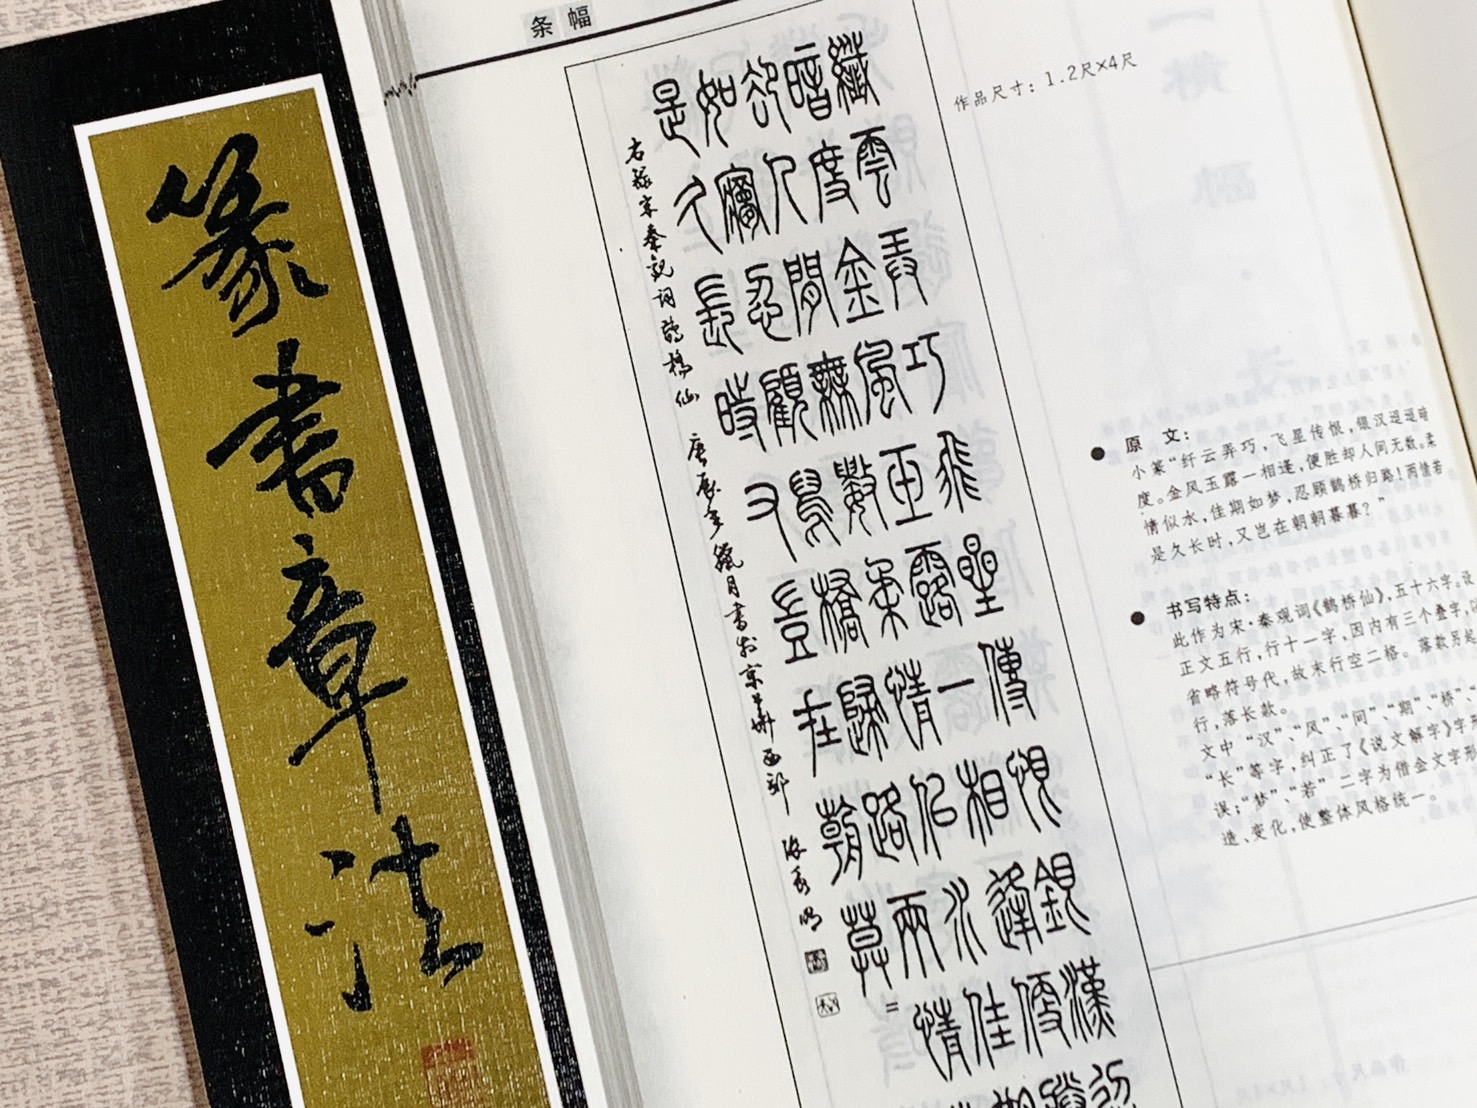 篆書章法
条幅
作品尺寸：1.2尺×4尺
纖雲弄巧飛星傳恨銀漢迢
暗度金風玉露一相逢便勝
卻人間無數柔情似水佳期
如夢忍顧鵲橋歸路兩情
是久長時又豈在朝暮=
右録宋秦觀詞鵲橋仙 庚辰年 月書於京華西部
● 原 文：
小篆“纤云弄巧，飞星传恨，银汉迢迢暗
度。金风玉露一相逢，便胜却人间无数。柔
情似水，佳期如梦，忍顾鹤桥归路！两情若
是久长时，又岂在朝朝暮暮？”
● 书写特点：
此作为宋·秦观词《鹤桥仙》，五十六字，设
正文五行，行十一字，因内有三个叠字，
省略符号代，故末行空二格。落款另起
行，落长款。
文中“汉”、“风”、“间”、“期”、“桥”、
“长”等字，纠正了《说文解字》字形
误；“梦”、“若”二字为借金文字形
造、变化，使整体风格统一。